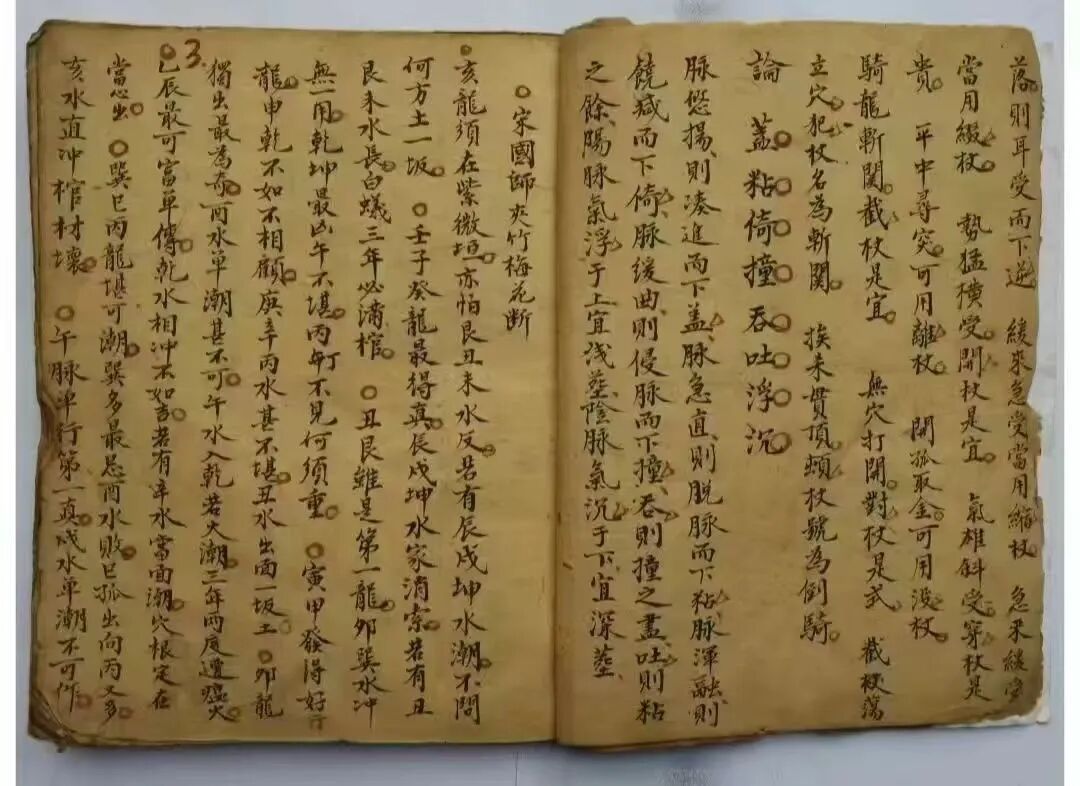 落則耳受而下逆　緩來急受當用縮杖　急來緩受
當用綴杖　勢猛橫受開杖是宜　氣雄斜受穿杖是
貴　平中尋突可用離杖　開孤取金可用沒杖
騎龍斬関截杖是宜　無穴打開對杖是式　截杖蕩
立穴犯杖名為斬関　挨未貫頂頓杖號為倒騎
論　蓋粘倚撞吞吐浮沉
脉悠揚則湊進而下蓋脉急直則脱脉而下粘脉渾融則
饒減而下倚脉緩曲則侵脉而下撞吞則撞之盡吐則粘
之餘陽脉氣浮于上宜淺塟陰脉氣沉于下宜深塟
宋國師夾竹梅花斷
亥龍須在紫微垣亦怕艮丑未水反若有辰戌坤水潮不問
何方土一坂　壬子癸龍最得真辰戌坤水家消索若有丑
艮未水長白蟻三年必滿棺　丑艮雖是第一龍卯巽水冲
無一用乾坤最凶午不堪丙丁不見何須重　寅甲發得好行
龍申乾不如不相顧庚辛丙水甚不堪丑水出面一坂土　卯龍
獨出最為奇酉水單潮甚不可午水入乾若大潮三年兩度遭瘟火
3.
巳辰最可富單傳乾水相冲不如吉若有辛水當面潮穴根定在
當忌出　巽巳丙龍堪可潮巽多最忌酉水敗巳孤出向丙又多
亥水直冲棺材壞　午脉单行第一真戌水单潮不可作